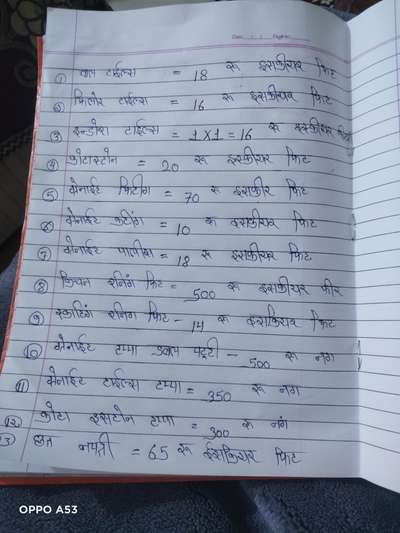 ① वाल टाईल्स = 18 रू इसकीयर फिट
② फिलोर टाईल्स = 16 रू इसकीयर फिट
③ इन्डोवा टाईल्स = 1X1 = 16 रू इस्कीयर फिट
④ कोटास्टोन = 20 रू इसकीयर फिट
⑤ ग्रेनाईट फिटींग = 70 रू इसकीर फिट
⑥ ग्रेनाईट कटींग = 10 रू इसकीयर फिट
⑦ ग्रेनाईट पालीस = 18 रू इसकीयर फिट
⑧ किचन रनिंग फिट = 500 रू इसकीयर फीर
⑨ स्कटिंग रनिग फिट - 14 रू इसकियर फिट
⑩ ग्रेनाईट टप्पा डबल पट्टी - 500 रू नग
⑪ ग्रेनाईट टाईल्स टप्पा = 350 रू नग
⑫ कोटा इसटोन टप्पा = 300 रू नंग
13 छत = 65 रू इसकियर फिट
OPPO A53